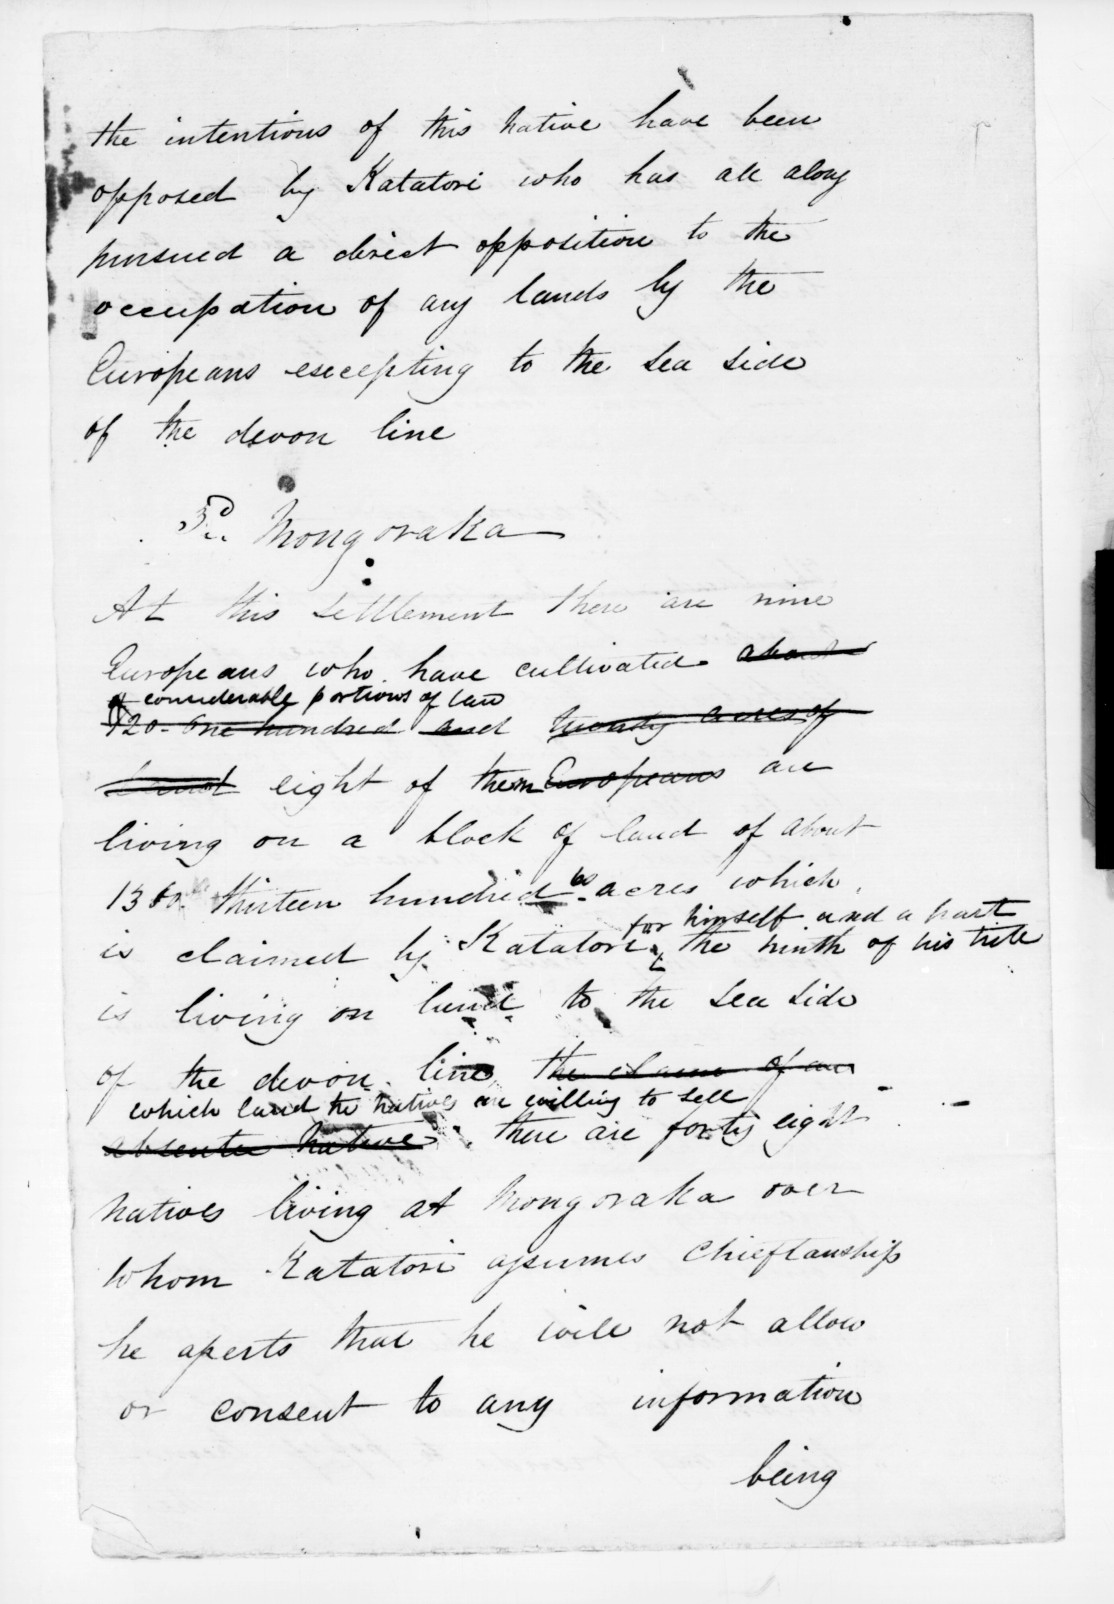 the intentions of this native have been
opposed by Katatori who has all along
pursued a direct opposition to the
occupation of any lands by the
Europeans excepting to the sea side
of the devon line
3d.. Mongoraka
At this settlement there are nine
Europeans who have cultivated about
considerable portions of land
120 - One hundred and twenty acres of
land eight of them Europeans are
living on a block of land of about
1300 thirteen hundred acres which
for himself and a part
is claimed by Katatori the ninth of his tribe
is living on land to the sea side
of the devon line, the claim of an
which land the natives are willing to sell
absentee native there are forty eight
natives living at Mongoraka over
whom Katatori assumes Chieftanship
he asserts that he will not allow
or consent to any information
being